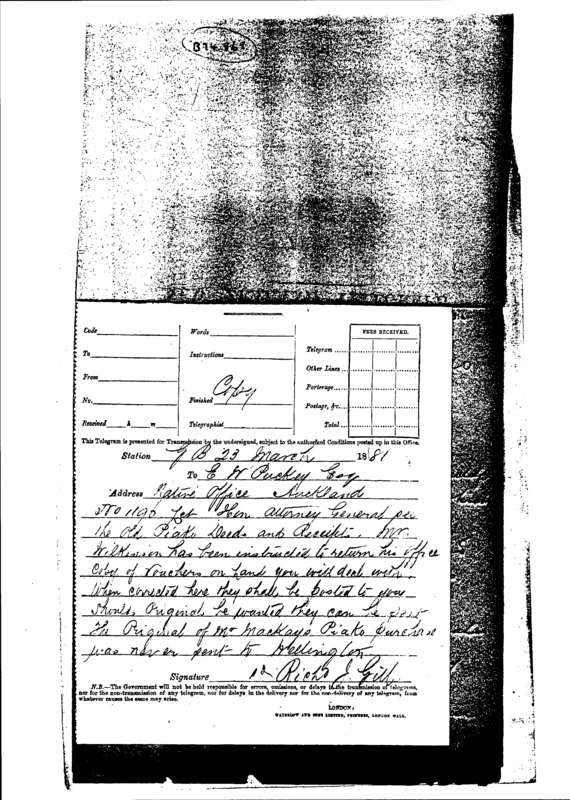 B74.869
Code Words FEES RECEIVED.
To Instructions Telegram
Other Lines
From Copy Porterage
No. Finished Postage, &c.
Received h m Telegraphist Total
This Telegram is presented for Transmission by the undersigned, subject to the authorised Conditions posted up in this Office.
Station G B 23 March 1881
To E W Puckey Esq
Address Native Office Auckland
No 1190 Let Hon Attorney General see
the old Piako Deeds and Receipts. Mr
Wilkinson has been instructed to return his office
Copy of Vouchers on hand you will deal with.
When corrected here they shall be posted to you
should Original be wanted they can be sent
The Original of Mr Mackays Piako purchase
was never sent to Wellington
Signature Richd J Gill
N.B.—The Government will not be held responsible for errors, omissions, or delays in the transmission of telegrams,
nor for the non-transmission of any telegram, nor for delays in the delivery nor for the non-delivery of any telegram, from
whatever causes the same may arise.
LONDON:
WATERLOW AND SONS LIMITED, PRINTERS, LONDON WALL.